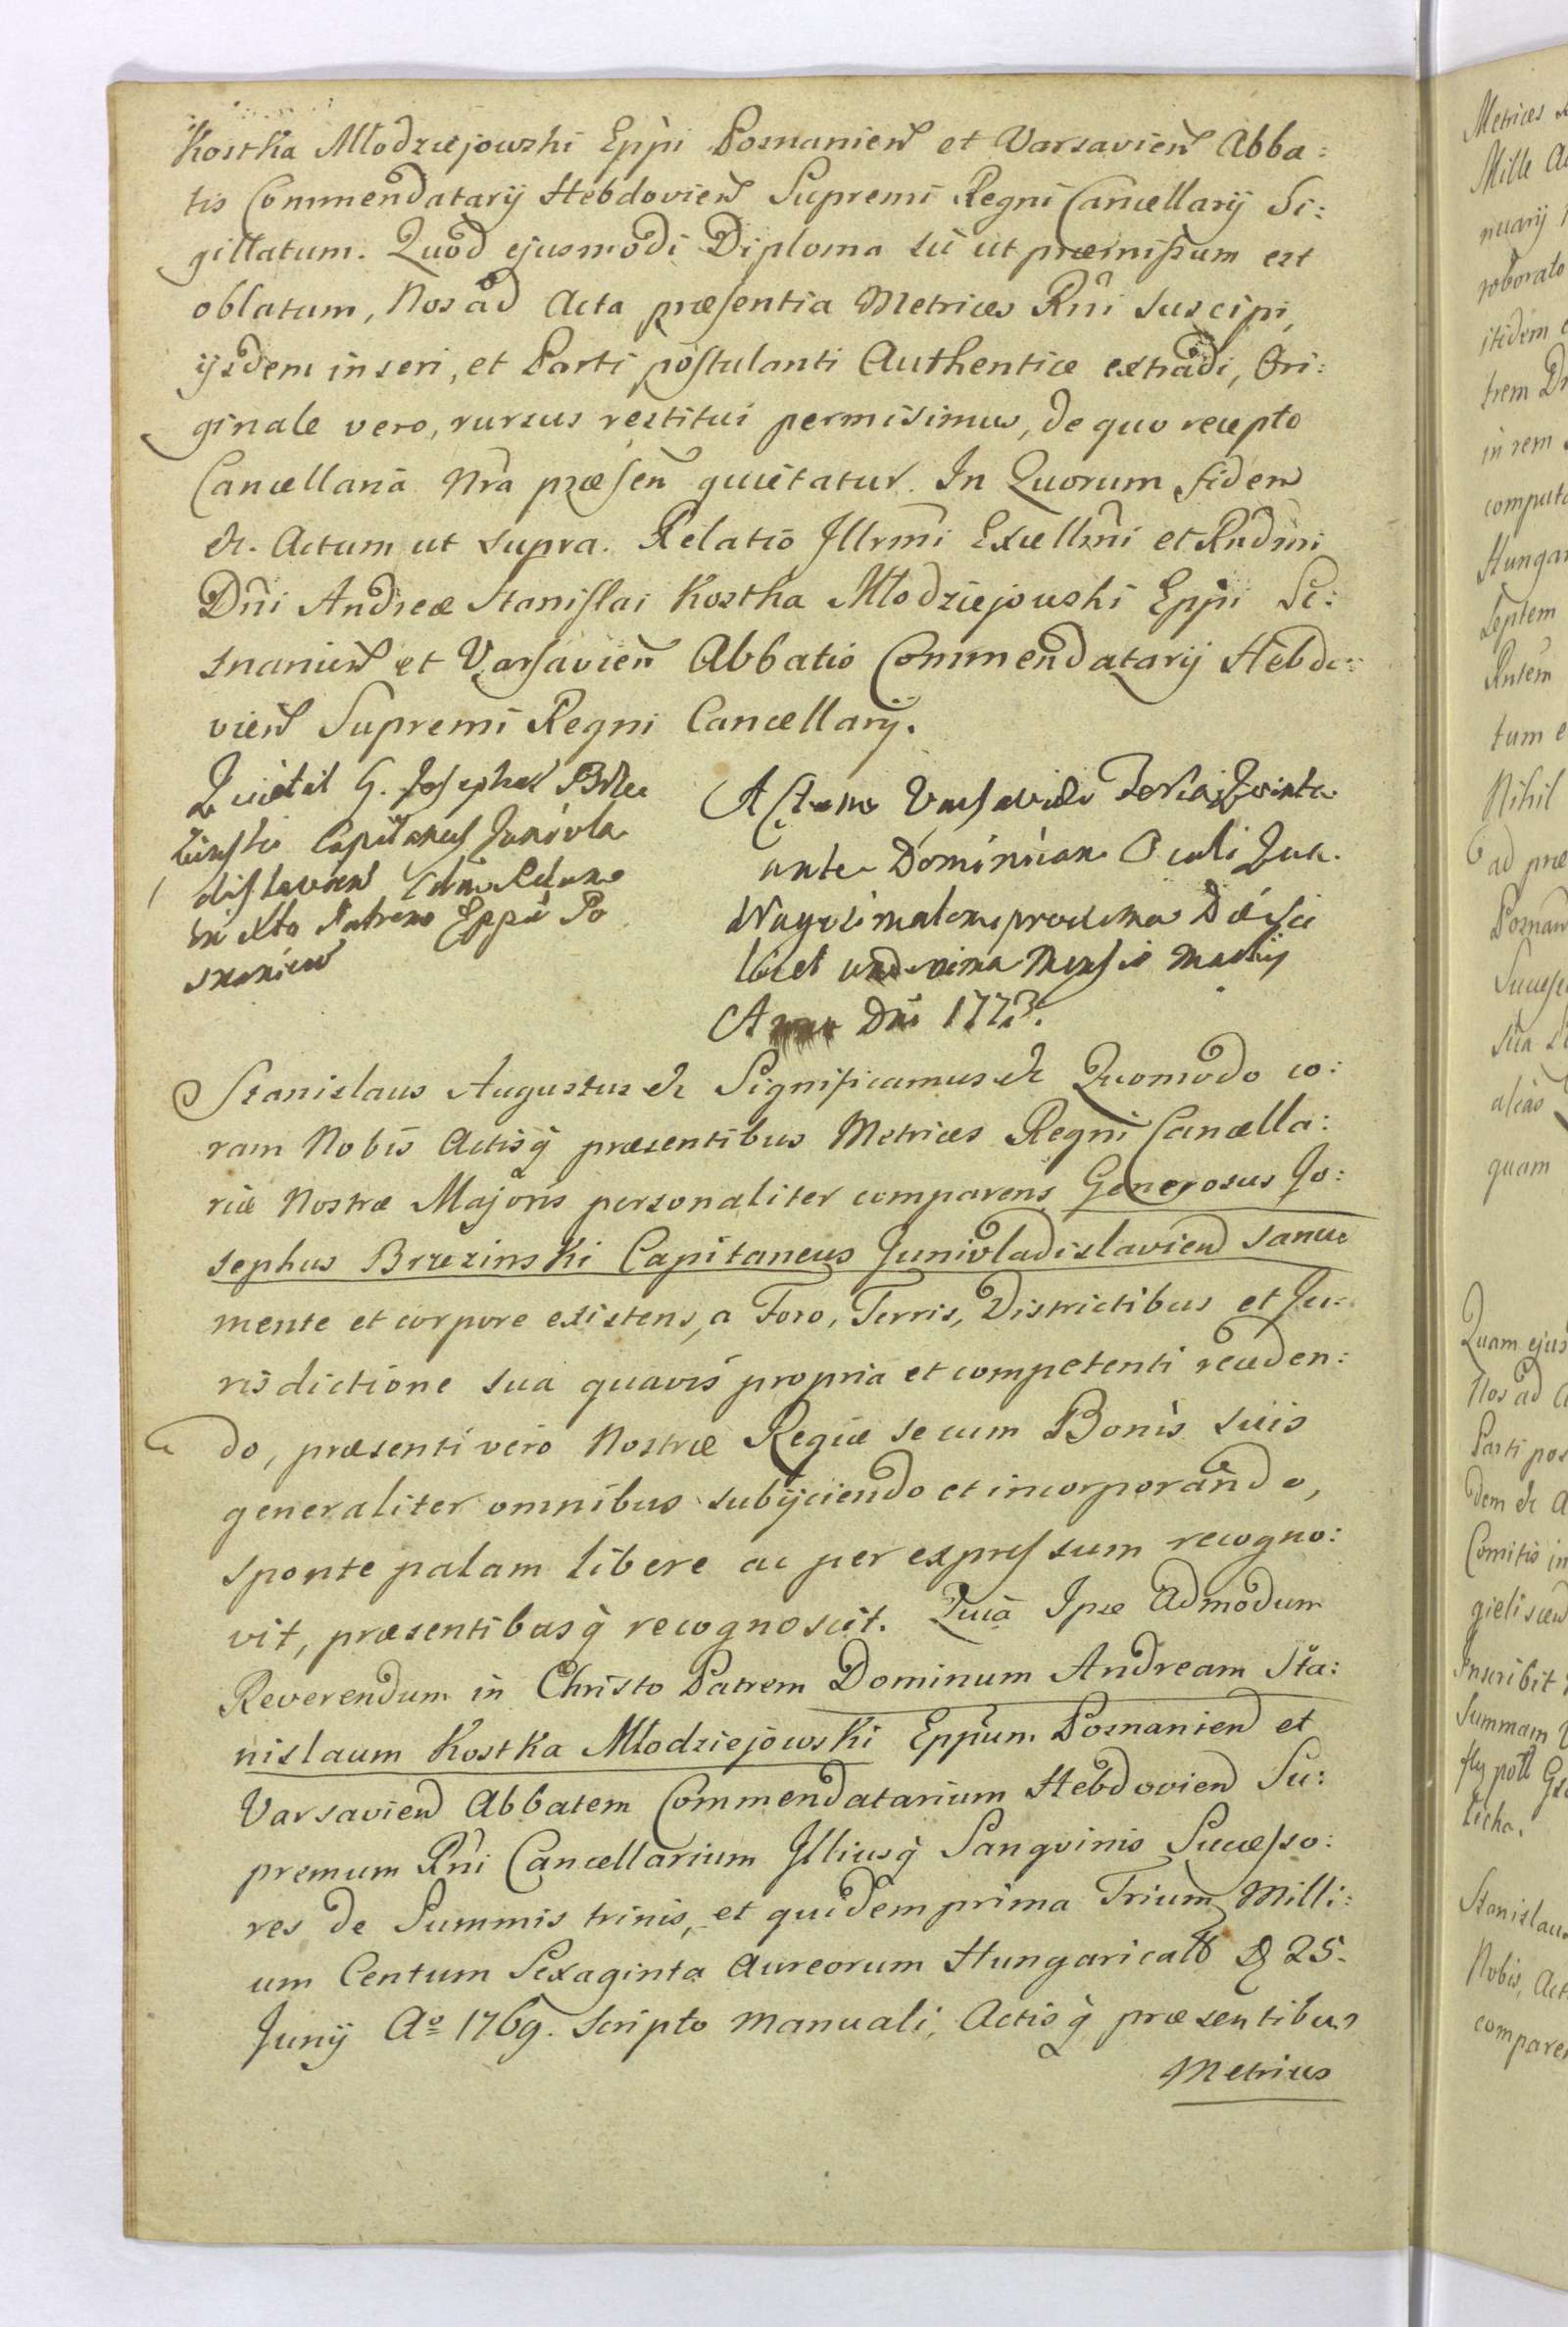 Kostka Młodziejowski Eppi Posnanien et Varsavien Abba:
tis Commendatarij Hebdovien Supremi Regni Cancellarij Si:
gillatum. Quod ejusmodi Diploma sic ut præmissum est
oblatum, Nos ad Acta præsentia Metrices Rni suscipi,
ijsdem inseri, et Parti postulanti Authentice extradi, Ori:
ginale vero, rursus restitui permisimus, de quo recepto
Cancellaria Nra præsen quietatur. In Quorum fidem
&c. Actum ut supra. Relatio Illrmi Excellmi et Rndmi
Dni Andreæ Stanislai Kostka Młodziejowski Eppi Po:
snanien et Varsavien Abbatis Commendatarij Hebdo:
vien Supremi Regni Cancellarij.
Quietat G. Josephus Brze
zinski Capitaneus Junivla
dislavien Admodum
in Xto Patrem Eppū Po
snanien
Actum Varsaviæ Feria Quinta
ante Dominicam Oculi Qua
dragesimalem proxima Die sci
licet undecima Mensis Martij
Anno Dni 1773.
Stanislaus Augustus &c Significamus &c Quomodo co:
ram Nobis Actisq præsentibus Metrices Regni Cancella:
riæ Nostræ Majoris personaliter comparens Generosus Jo:
sephus Brzezinski Capitaneus Junivladislavien sanus
mente et corpore existens, a Foro, Terris, Districtibus et Ju:
risdictione sua quavis propria et competenti receden:
do, præsenti vero Nostræ Regiæ se cum Bonis suis
generaliter omnibus subijciendo et incorporando,
sponte palam libere ac per expressum recogno:
vit, præsentibusq recognoscit. Quia Ipse Admodum
Reverendum in Christo Patrem Dominum Andream Sta:
nislaum Kostka Młodziejowski Eppum Posnanien et
Varsavien Abbatem Commendatarium Hebdovien Su:
premum Rni Cancellarium Illiusq Sangvinis Successo:
res de Summis trinis, et quidem prima Trium Milli:
um Centum Sexaginta Aureorum Hungaricalium D 25.
Junij Ao 1769. Scripto Manuali, Actisq præsentibus
Metrices
Metrices
Mille
nuarij
roborato
itidem
trem
in rem
Hungar
Septem
tum e
Nihil
ad præ
Posnan
Sua
alias
quam
Quam ejus
Nos ad
Parti pos
dem &c
Comitis in
Inscribit
Summam
Stanislau
Nobis, Act
comparen